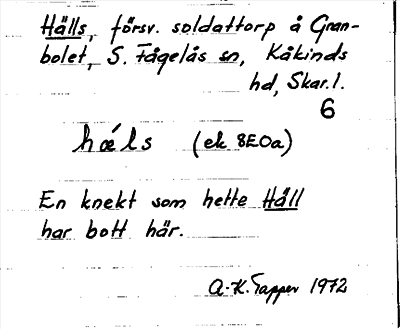 Hälls, försv. soldattorp å Gran-
bolet, S. Fågelås sn, Kåkinds
hd, Skar. l.
6
hǽls (ek 8E0a)
En knekt som hette Häll
har bott här.
A.-K. Tapper 1972